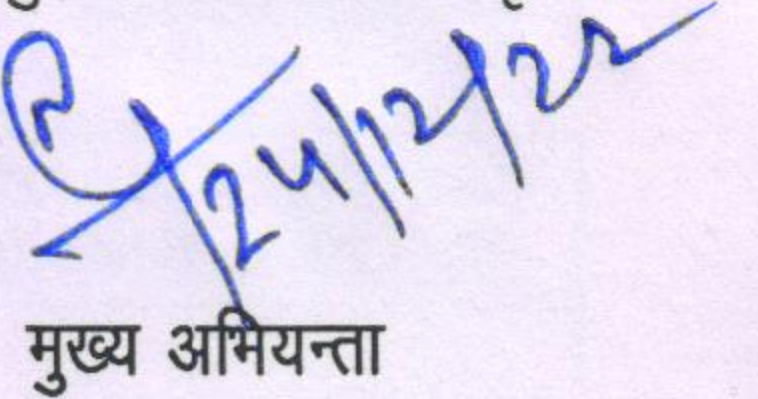 24/12/22
मुख्य अभियन्ता